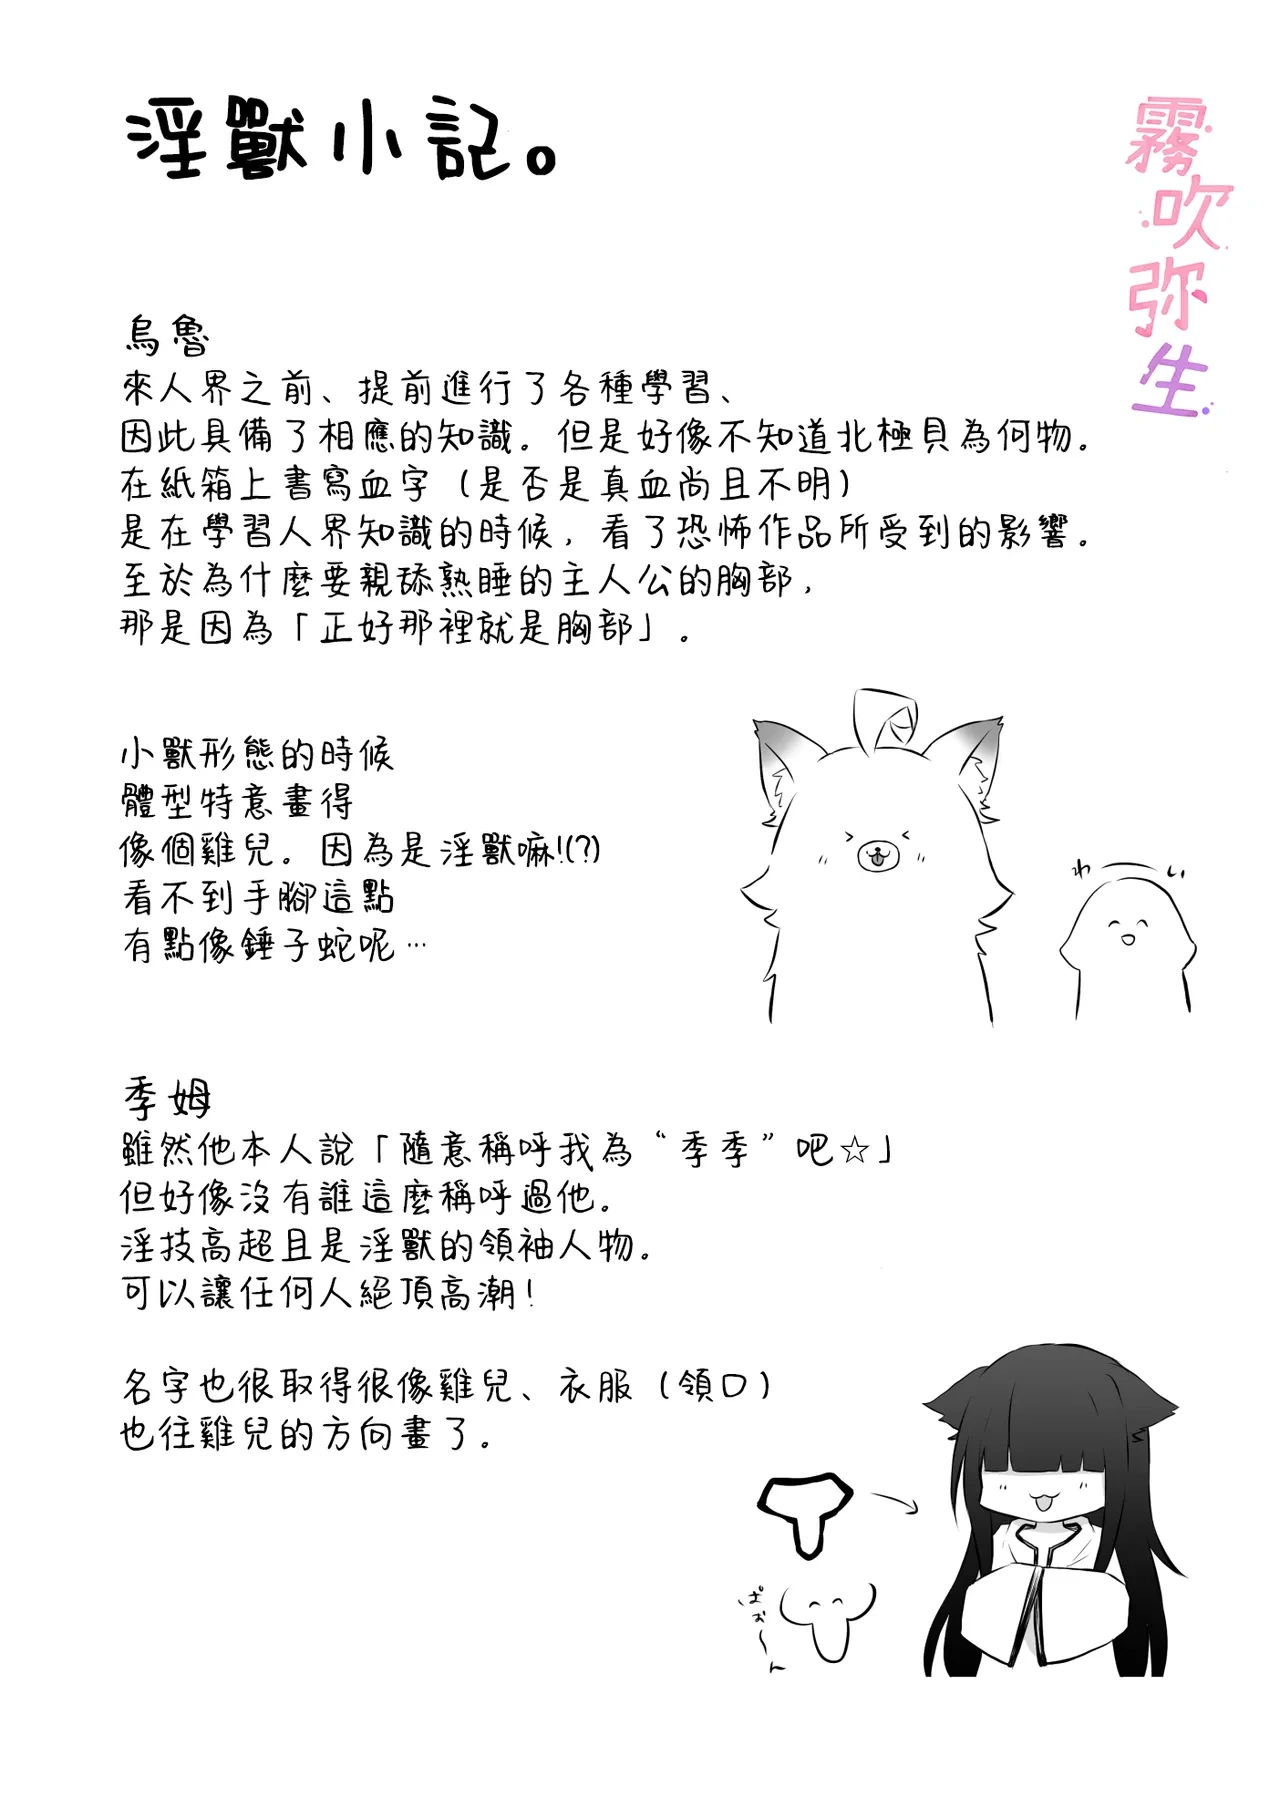 淫獸小記。
霧吹弥生
烏魯
來人界之前、提前進行了各種學習、
因此具備了相應的知識．但是好像不知道北極貝為何物．
在紙箱上書寫血字（是否是真血尚且不明）
是在學習人界知識的時候，看了恐怖作品所受到的影響．
至於為什麼要親舔熟睡的主人公的胸部，
那是因為「正好那裡就是胸部」．
小獸形態的時候
體型特意畫得
像個雞兒．因為是淫獸嘛!(?)
看不到手腳這點
有點像錘子蛇呢…
わーい
季姆
雖然他本人說「隨意稱呼我為“季季”吧☆」
但好像沒有誰這麼稱呼過他．
淫技高超且是淫獸的領袖人物．
可以讓任何人絕頂高潮！
名字也很取得很像雞兒、衣服（領口）
也往雞兒的方向畫了．
ぱぉ〜ん